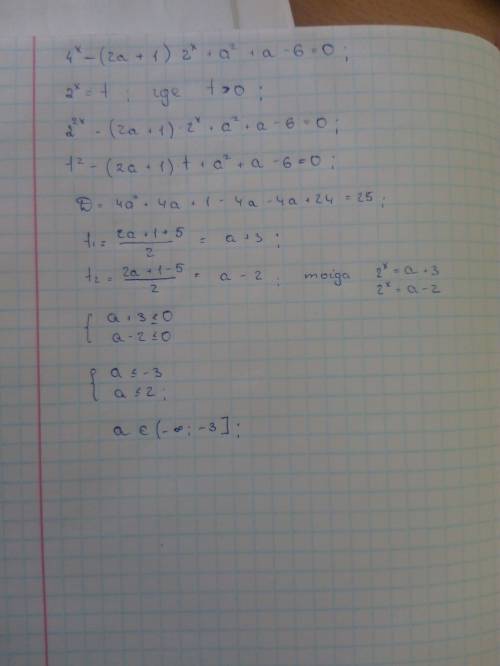 4ˣ - (2a + 1) · 2ˣ + a² + a - 6 = 0 ;
2ˣ = t ; где t > 0 ;
2²ˣ - (2a + 1) · 2ˣ + a² + a - 6 = 0 ;
t² - (2a + 1) t + a² + a - 6 = 0 ;
D = 4a² + 4a + 1 - 4a - 4a + 24 = 25 ;
t₁ = (2a + 1 + 5)/2 = a + 3 ;
t₂ = (2a + 1 - 5)/2 = a - 2 ; тогда 2ˣ = a + 3
2ˣ = a - 2
{ a + 3 ≤ 0
a - 2 ≤ 0
{ a ≤ -3
a ≤ 2 ;
a ∈ (-∞ ; -3] ;